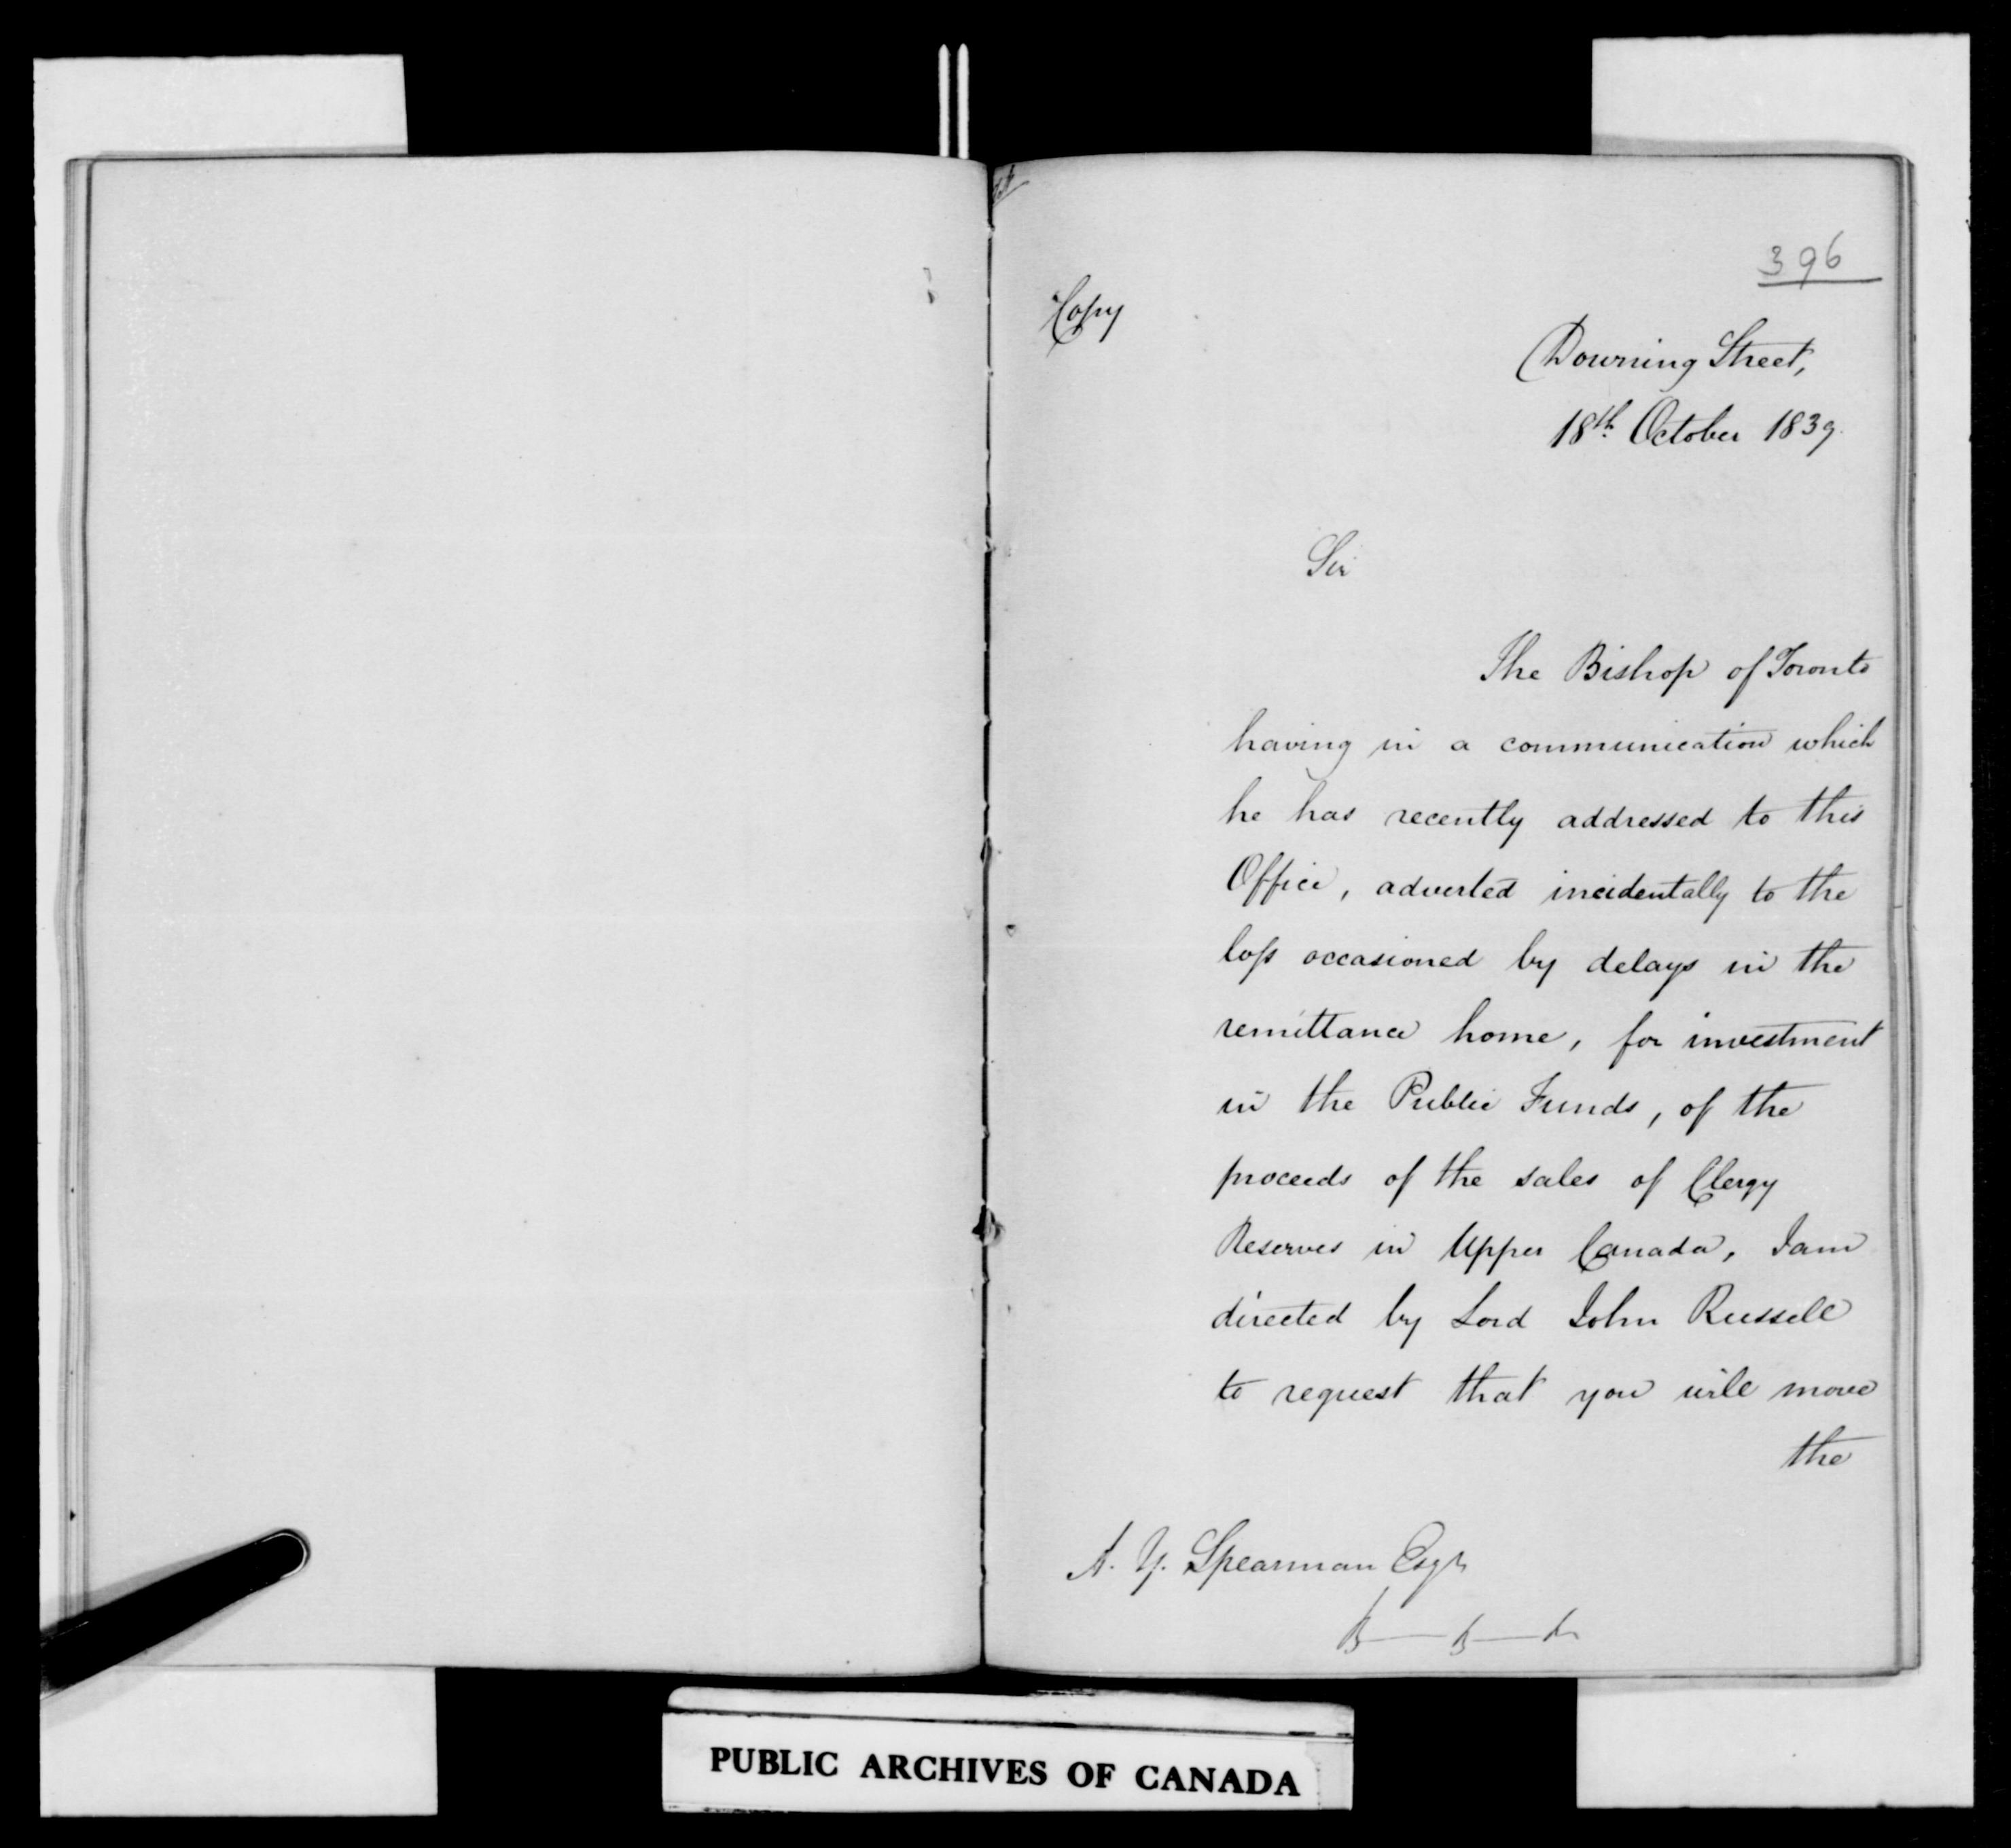 396
Copy
Downing Street,
18th October 1839.
Sir
The Bishop of Toronto
having in a communication which
he has recently addressed to this
Office, adverted incidentally to the
loss occasioned by delays in the
remittance home, for investment
in the Public Funds, of the
proceeds of the sales of Clergy
Reserves in Upper Canada, I am
directed by Lord John Russell
to request that you will move
the
A. Y. Spearman Esqr
PUBLIC ARCHIVES OF CANADA